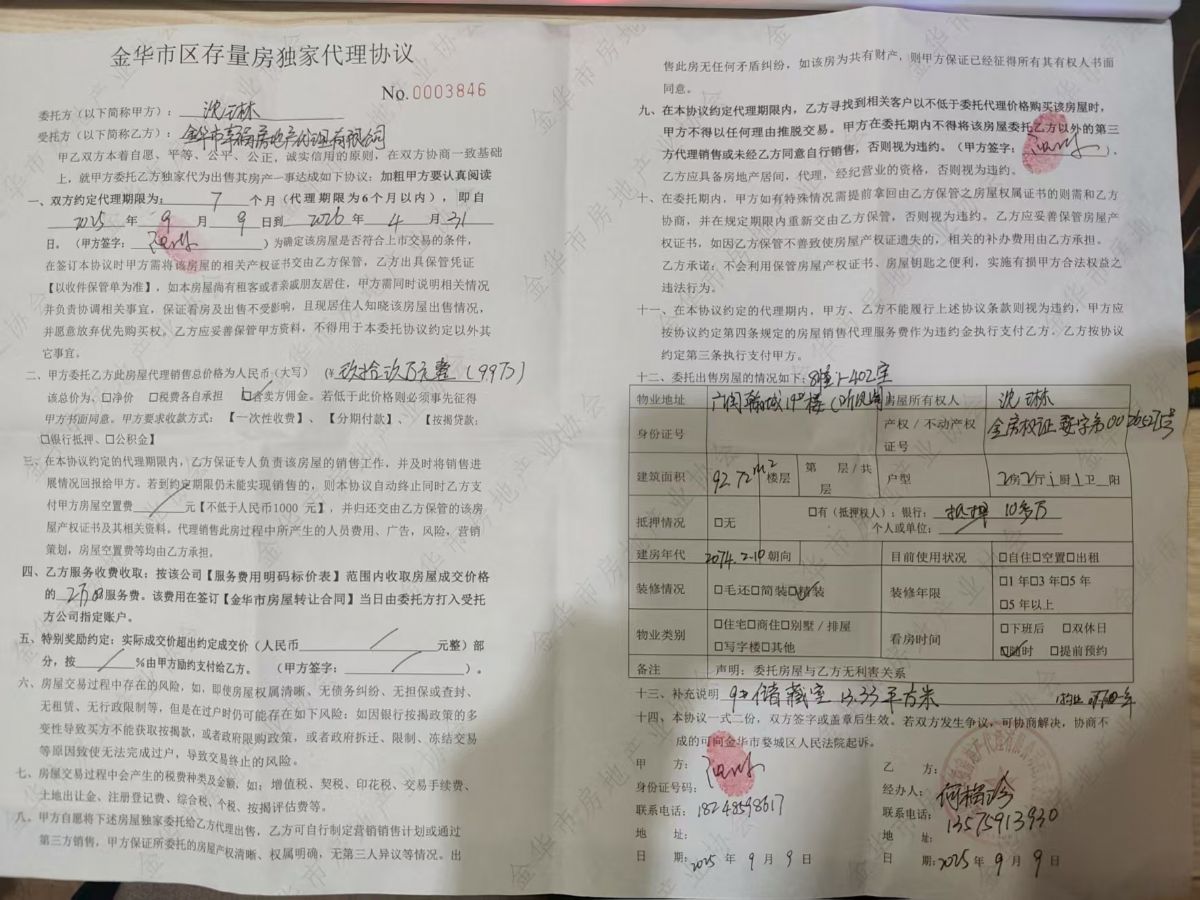 金华市区存量房独家代理协议
No.0003846
委托方（以下简称甲方）：
受托方（以下简称乙方）：金华市幸福房地产代理有限公司
甲乙双方本着自愿、平等、公平、公正，诚实信用的原则，在双方协商一致基础
上，就甲方委托乙方独家代为出售其房产一事达成如下协议：加粗甲方要认真阅读
一、双方约定代理期限为：7个月（代理期限为6个月以内），即自
2025年9月9日到2026年4月31
日。（甲方签字：）为确定该房屋是否符合上市交易的条件，
在签订本协议时甲方需将该房屋的相关产权证书交由乙方保管，乙方出具保管凭证
【以收件保管单为准】，如本房屋尚有租客或者亲戚朋友居住，甲方需同时说明相关情况
并负责协调相关事宜，保证看房及出售不受影响，且现居住人知晓该房屋出售情况，
并愿意放弃优先购买权。乙方应妥善保管甲方资料，不得用于本委托协议约定以外其
它事宜。
二、甲方委托乙方此房屋代理销售总价格为人民币（大写）（¥玖拾玖万元整（99万）
该总价为、☐净价 ☐税费各自承担 ☑含卖方佣金。若低于此价格则必须事先征得
甲方书面同意。甲方要求收款方式：【一次性收费】、【分期付款】、【按揭贷款：
☐银行抵押、☐公积金】
三、在本协议约定的代理期限内，乙方保证专人负责该房屋的销售工作，并及时将销售进
展情况回报给甲方。若到约定期限仍未能实现销售的，则本协议自动终止同时乙方支
付甲方房屋空置费／元【不低于人民币1000 元】，并归还交由乙方保管的该房
屋产权证书及其相关资料。代理销售此房过程中所产生的人员费用、广告，风险，营销
策划，房屋空置费等均由乙方承担。
四、乙方服务收费收取：按该公司【服务费用明码标价表】范围内收取房屋成交价格
的服务费。该费用在签订【金华市房屋转让合同】当日由委托方打入受托
方公司指定账户。
五、特别奖励约定：实际成交价超出约定成交价（人民币／元整）部
分，按／%由甲方励约支付给乙方。（甲方签字：／）。
六、房屋交易过程中存在的风险，如，即使房屋权属清晰、无债务纠纷、无担保或查封、
无租赁、无行政限制等，但是在过户时仍可能存在如下风险：如因银行按揭政策的多
变性导致买方不能获取按揭款，或者政府限购政策，或者政府拆迁、限制、冻结交易
等原因致使无法完成过户，导致交易终止的风险。
七、房屋交易过程中会产生的税费种类及金额，如；增值税、契税、印花税、交易手续费、
土地出让金、注册登记费、综合税、个税、按揭评估费等。
八、甲方自愿将下述房屋独家委托给乙方代理出售，乙方可自行制定营销销售计划或通过
第三方销售，甲方保证所委托的房屋产权清晰、权属明确，无第三人异议等情况。出
售此房无任何矛盾纠纷，如该房为共有财产，则甲方保证已经征得所有其有权人书面
同意。
九、在本协议约定代理期限内，乙方寻找到相关客户以不低于委托代理价格购买该房屋时，
甲方不得以任何理由推脱交易。甲方在委托期内不得将该房屋委托乙方以外的第三
方代理销售或未经乙方同意自行销售，否则视为违约。（甲方签字：）.
乙方应具备房地产居间，代理，经纪营业的资格，否则视为违约。
十、在委托期内，甲方如有特殊情况需提前拿回由乙方保管之房屋权属证书的则需和乙方
协商，并在规定期限内重新交由乙方保管，否则视为违约。乙方应妥善保管房屋产
权证书，如因乙方保管不善致使房屋产权证遗失的，相关的补办费用由乙方承担。
乙方承诺：不会利用保管房屋产权证书、房屋钥匙之便利，实施有损甲方合法权益之
违法行为。
十一、在本协议约定的代理期内，甲方、乙方不能履行上述协议条款则视为违约，甲方应
按协议约定第四条规定的房屋销售代理服务费作为违约金执行支付乙方。乙方按协议
约定第三条执行支付甲方。
十二、委托出售房屋的情况如下：8幢1-402室
物业地址 房屋所有权人
身份证号 产权／不动产权
证号
建筑面积 92.72m² 楼层 第 层／共
层 户型 2房2厅1厨1卫 阳
抵押情况 ☐无 ☐有（抵押权人）：银行：抵押 10多万
个人或单位：
建房年代 朝向 目前使用状况 ☐自住☐空置☐出租
装修情况 ☐毛还☐简装☑精装 装修年限 ☐1年☐3年☐5年
☐5年以上
物业类别 ☐住宅☐商住☐别墅／排屋
☐写字楼☐其他 看房时间 ☐下班后 ☐双休日
☑随时 ☐提前预约
备注 声明：委托房屋与乙方无利害关系
十三、补充说明 9# 储藏室 13.33平方米
十四、本协议一式二份，双方签字或盖章后生效。若双方发生争议，可协商解决，协商不
成的可向金华市婺城区人民法院起诉。
甲 方：
身份证号码：
联系电话：18248598617
地 址：
日 期：2025年9月9日
乙 方：
经办人：
联系电话：13575913930
地 址：
日 期：2025年9月9日